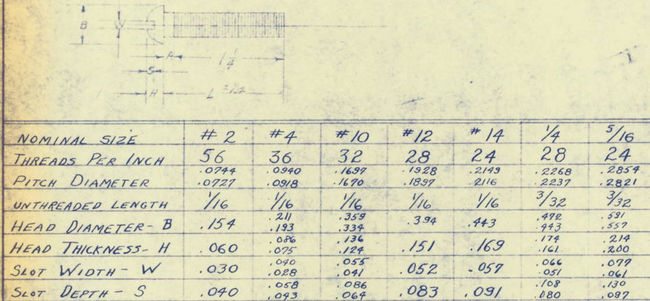 B W
A 1 1/4
S
H L
NOMINAL SIZE #2 #4 #10 #12 #14 1/4 5/16
THREADS PER INCH 56 36 32 28 24 28 24
.0744 .0940 .1697 .1928 .2149 .2268 .2854
PITCH DIAMETER .0727 .0918 .1670 .1897 .2116 .2237 .2821
UNTHREADED LENGTH 1/16 1/16 1/16 1/16 1/16 3/32 3/32
.211 .359 .472 .591
HEAD DIAMETER - B .154 .193 .334 .394 .443 .443 .557
.086 .136 .174 .214
HEAD THICKNESS - H .060 .075 .124 .151 .169 .161 .200
.040 .055 .066 .077
SLOT WIDTH - W .030 .028 .041 .052 .057 .051 .061
.058 .086 .108 .130
SLOT DEPTH - S .040 .043 .064 .083 .091 .080 .097